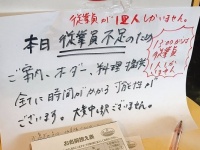 従業員が12人しかいません。
本日 従業員不足のため
ご案内、オーダー、料理提供
全てに時間がかかる可能性が
ございます。大変申し訳ございません。
従業員